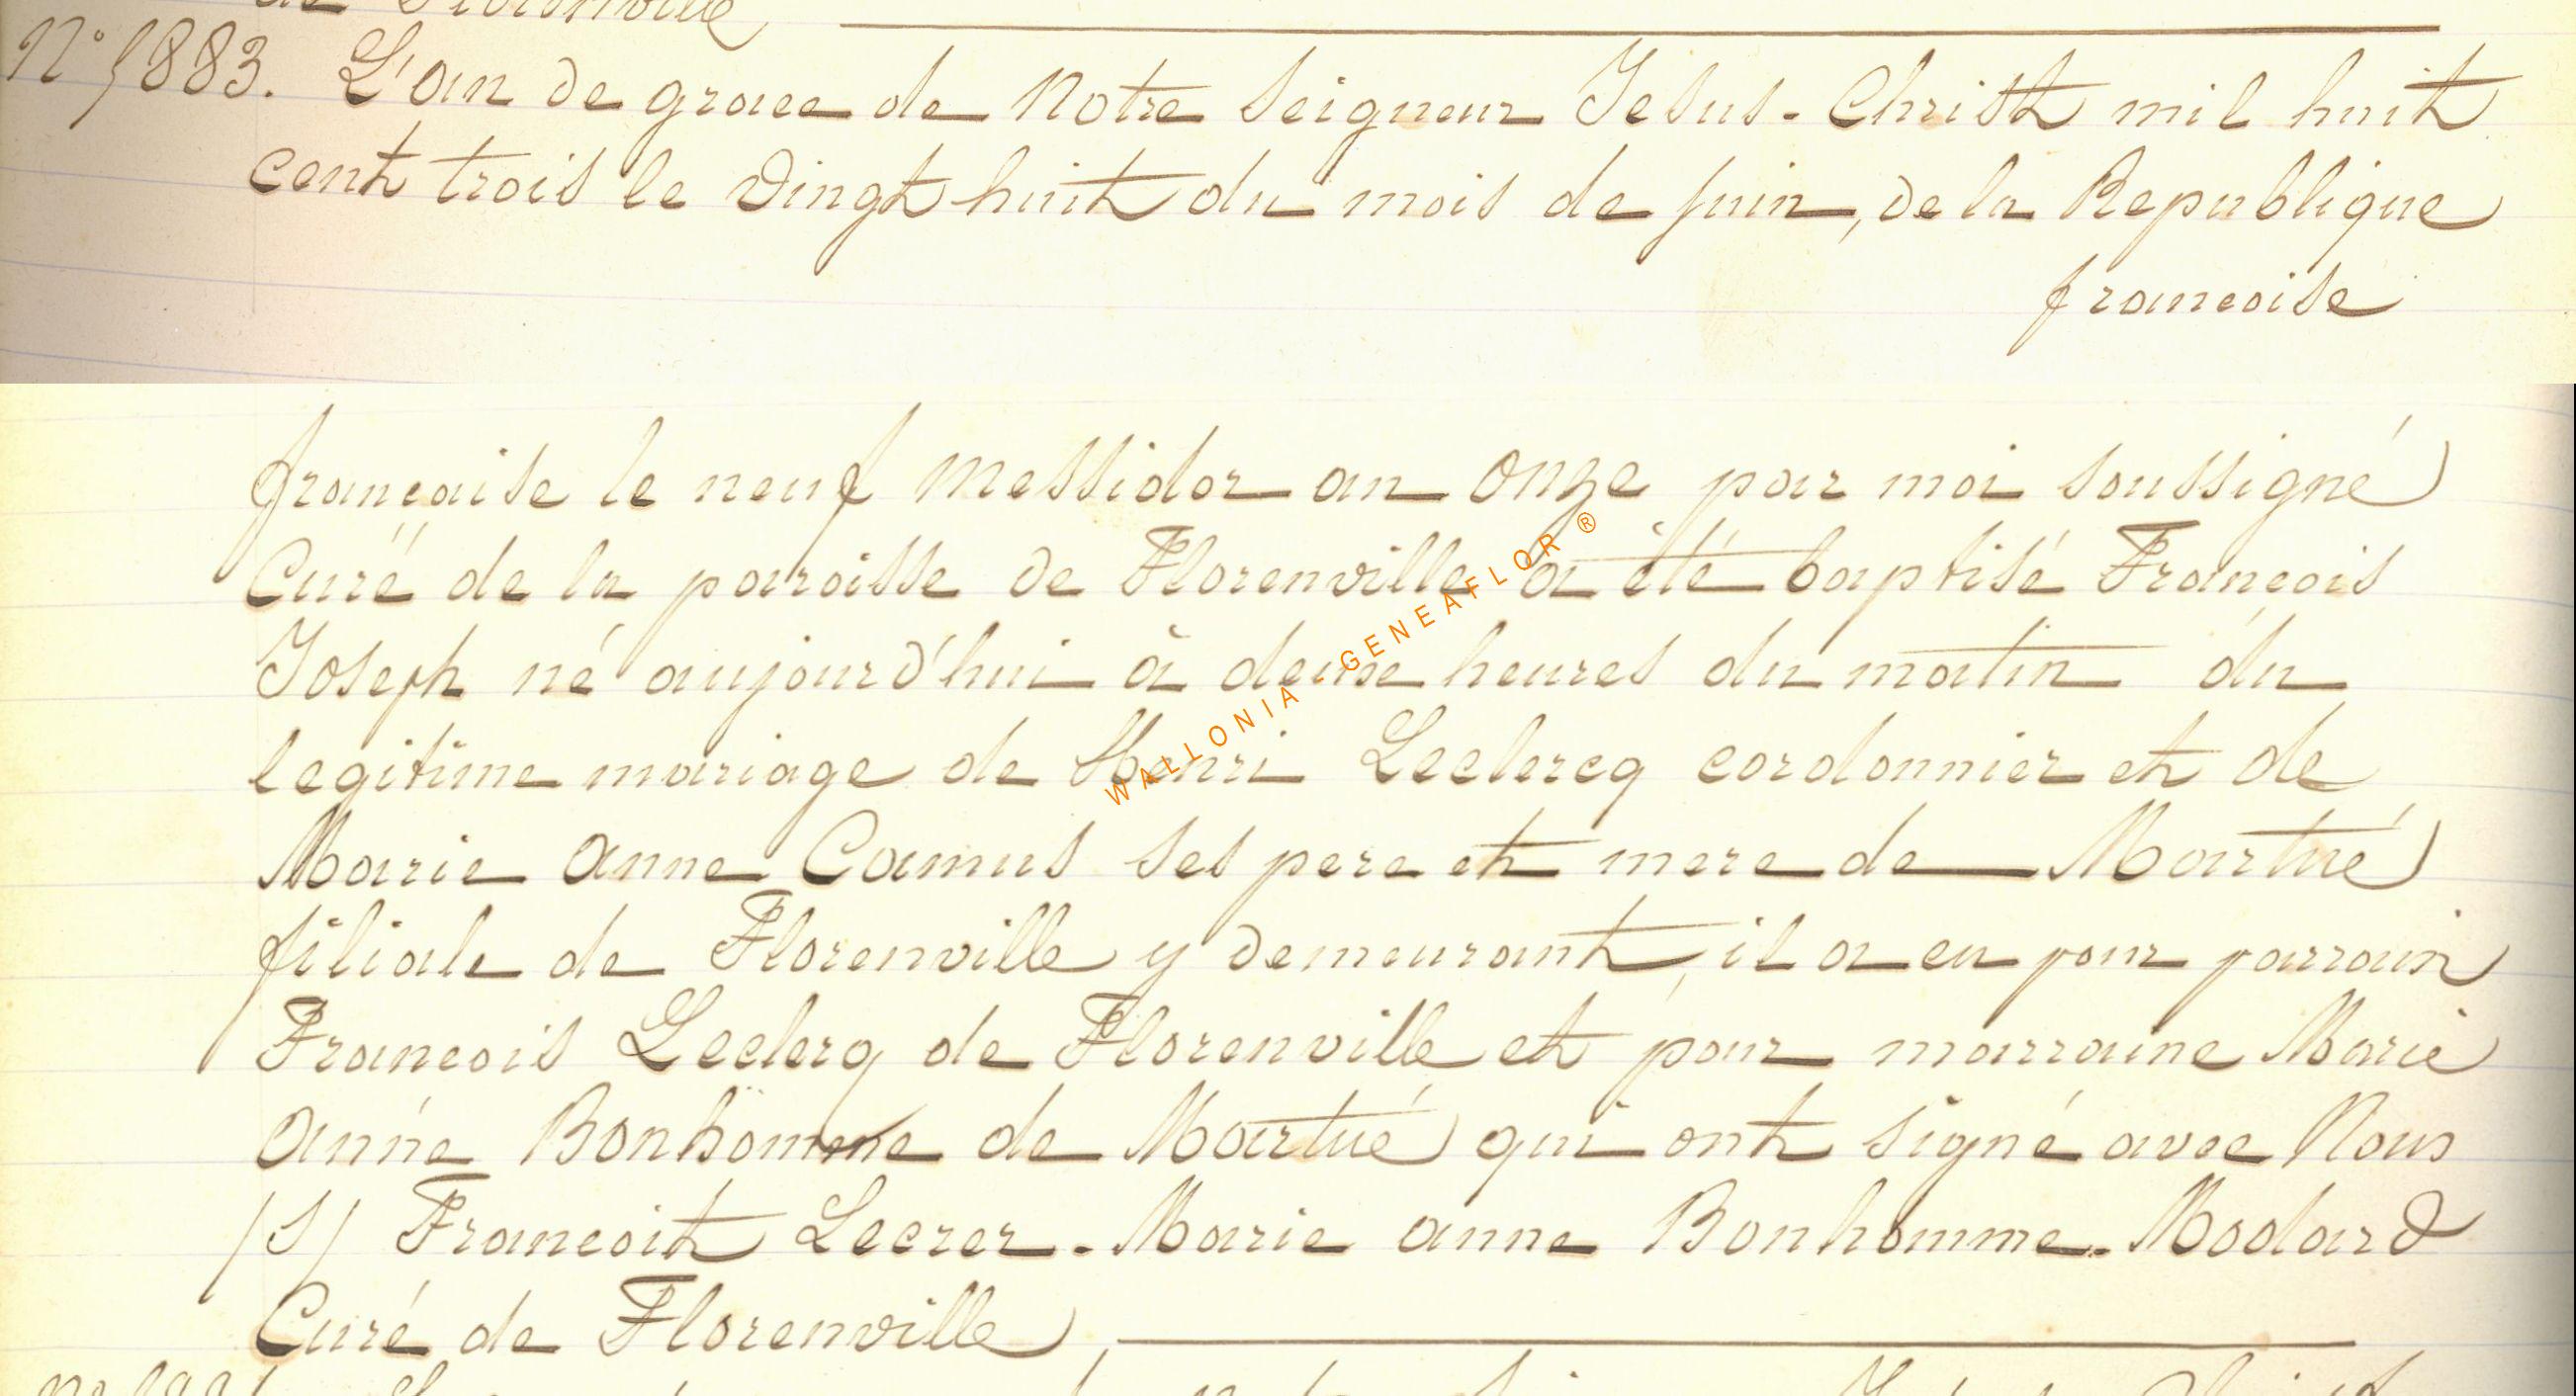 de Florenville
N° 1883. L'an de grace de Notre Seigneur Jesus-Christ mil huit
cent trois le vingt huit du mois de juin, de la Republique
francoise
françaises le neuf messidor an onze par moi soussigné
Curé de la paroisse de Florenville a été baptisé Francois
Joseph né aujourd'hui à deux heures du matin du
legitime mariage de Henri Leclercq cordonnier et de
Marie anne Camus ses pere et mere de Martué
filiale de Florenville y demeurant, il a eu pour parrain
Francois Leclerq de Florenville et pour marraine Marie
anne Bonhomme de Martué qui ont signé avec Nous
(s) Francoit Lecrer. Marie anne Bonhomme. Modard
Curé de Florenville
WALLONIA GENEAFLOR ®